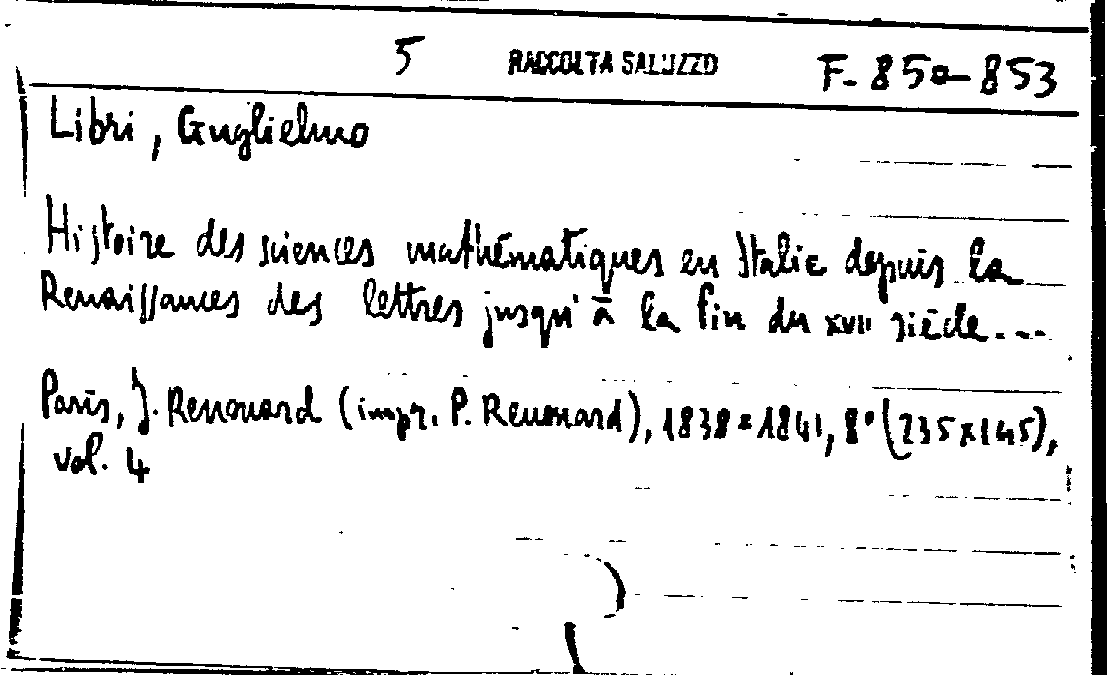 5 RACCOLTA SALUZZO F. 850-853
Libri, Guglielmo
Histoire des sciences mathématiques en Italie depuis la
Renaissances des lettres jusqu'à la fin du XVII siècle...
Paris, J. Renouard (impr. P. Renouard), 1838-1841, 8° (235x145),
vol. 4